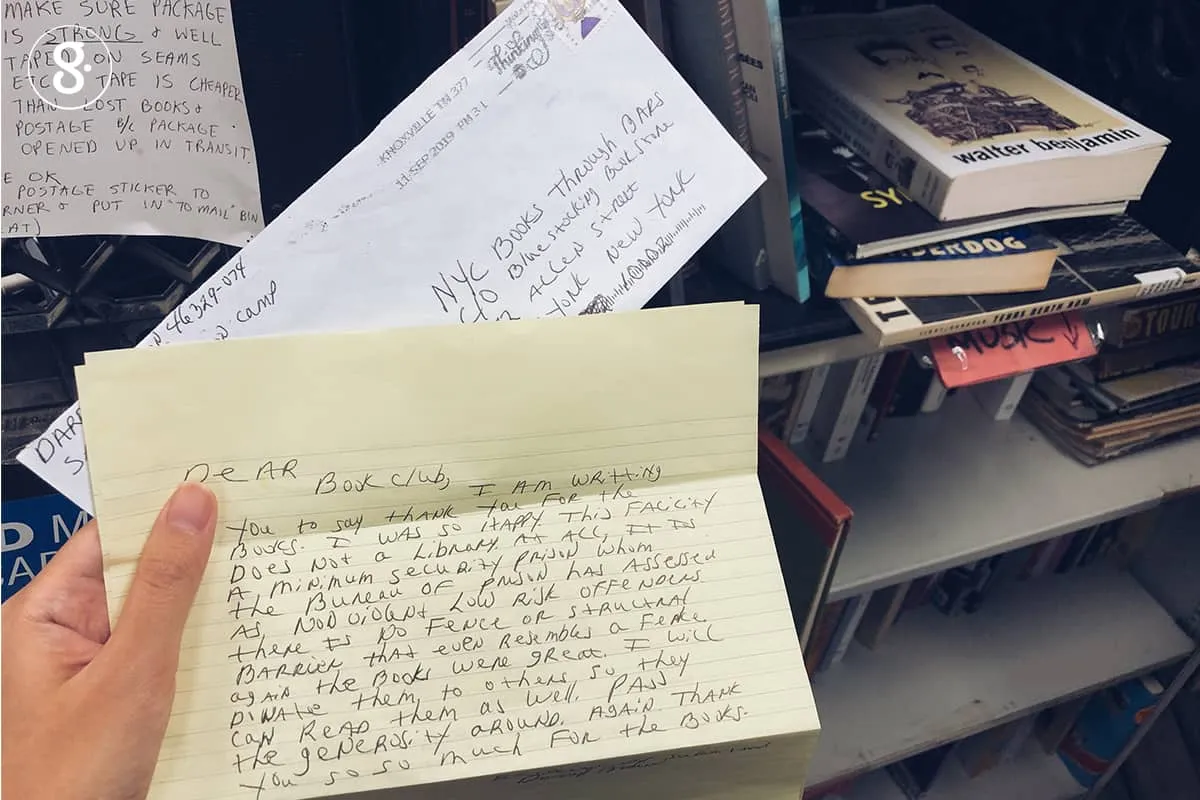 MAKE SURE PACKAGE
IS STRONG & WELL
TAPED ON SEAMS
ETC. TAPE IS CHEAPER
THAN LOST BOOKS &
POSTAGE B/C PACKAGE
OPENED UP IN TRANSIT.
E OK
POSTAGE STICKER TO
RNER & PUT IN "TO MAIL" BIN
AT)
8
Thinking of
KNOXVILLE TN 377
11 SEP 2019 PM 3 L
NYC Books Through BARS
C/O Bluestocking Bookstore
ALLEN Street
York New York
46329-074
camp
DAR
S
D M
CAR
walter benjamin
SY
DERDOG
TE
TEXAS DEATH ROW
MUSIC ↓
STOU
DeAR Book Club, I AM WRITING
You to say thank you FOR the
BOOKS. I WAS SO HAPPY. This FACILITY
DOES NOT a LIBRARY AT ALL, IT IS
A MINIMUM SECURITY PRISON WHOM
the BUREAU OF PRISON HAS ASSESSED
AS NON Violent LOW RISK OFFENDERS.
there IS NO FENCE OR STRUCTRAL
BARRIER that even Resembles a Fence
again the BOOKS WERE great. I WILL
DINATE them to others, so they
CAN READ them AS Well. PASS
the geneROSITY AROUND. AGAIN. THANK
You so so much FOR the BOOKS.